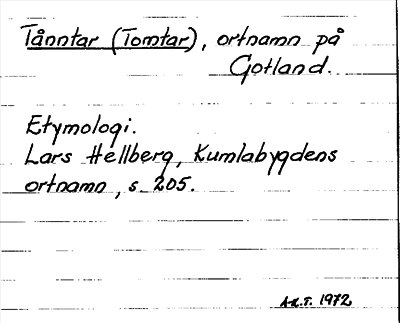 Tånntar (Tomtar), ortnamn på
Gotland.
Etymologi.
Lars Hellberg, Kumlabygdens
ortnamn, s. 205.
A.K.T. 1972